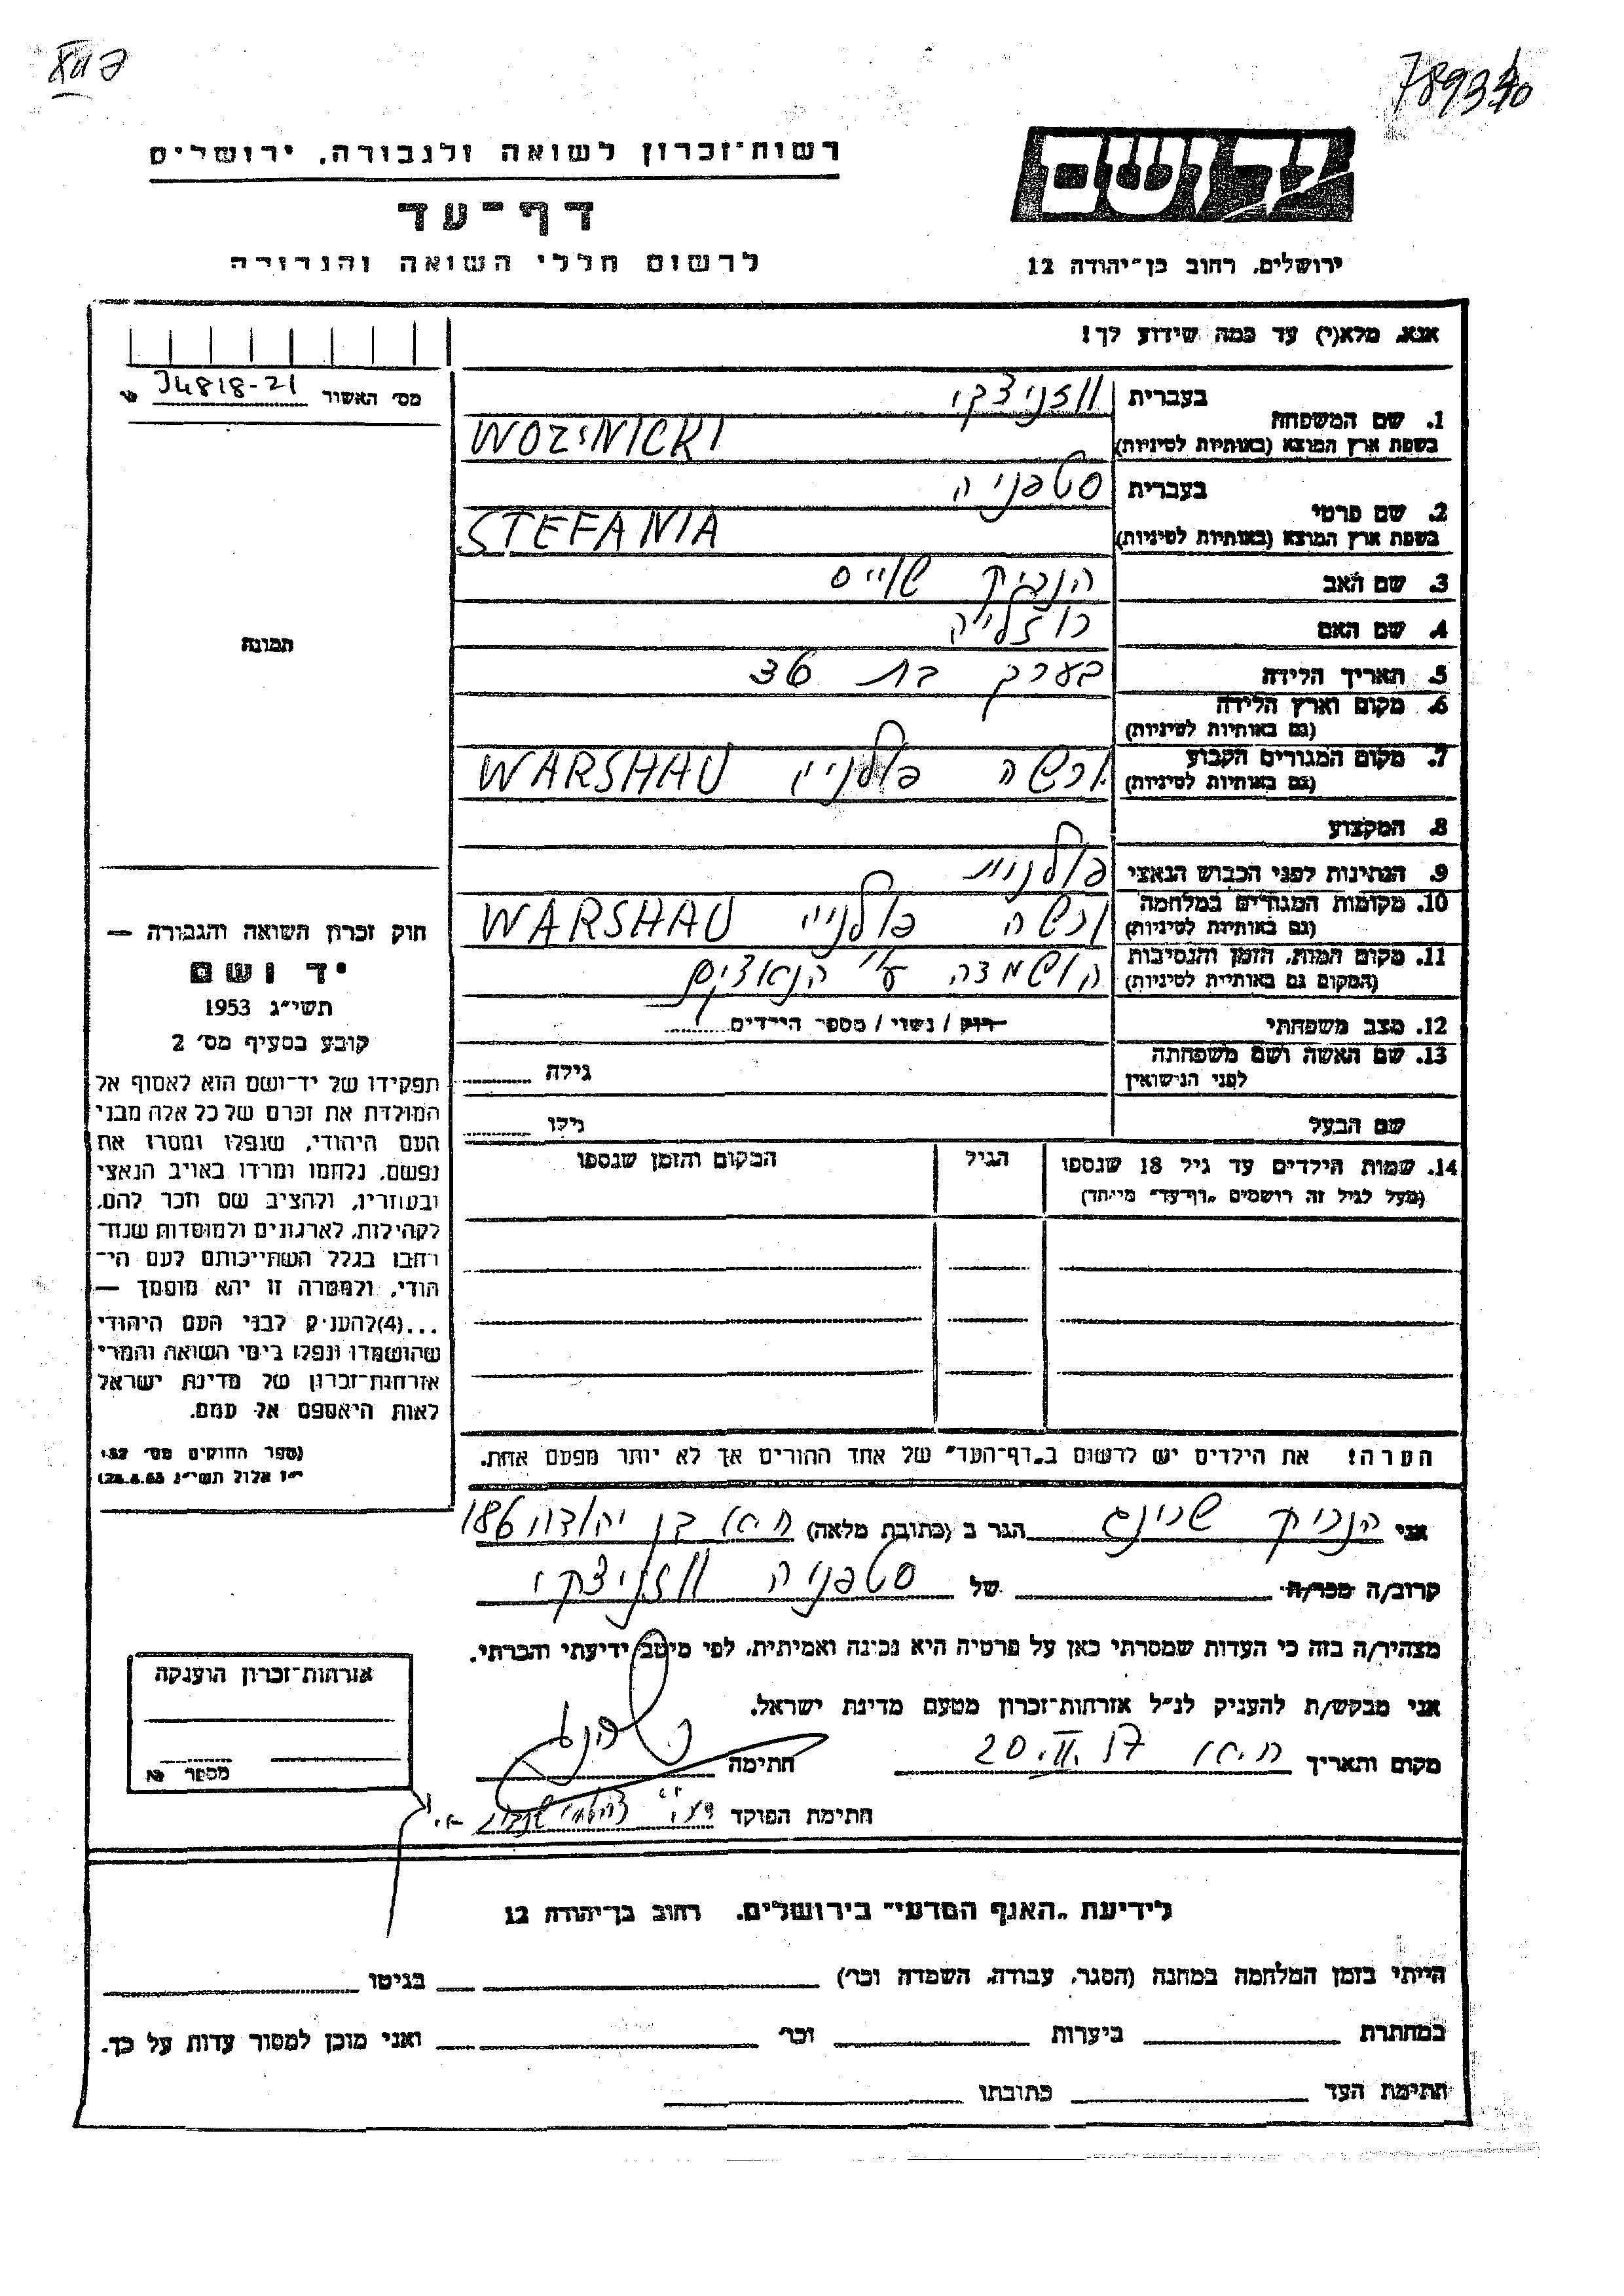 789340
רשות־זכרון לשואה ולגבורה, ירושלים
דף־עד
לרשום חללי השואה והגבורה
ירושלים, רחוב בן־יהודה 12
אנא, מלא(י) עד כמה שידוע לך!
מס׳ האשור 34818-21
1. שם המשפחה בעברית ווזניצקי
בשפת ארץ המוצא (באותיות לטיניות) WOZNICKI
2. שם פרטי בעברית סטפניה
בשפת ארץ המוצא (באותיות לטיניות) STEFANIA
3. שם האב הנריק
4. שם האם רוזליה
תמונה
5. תאריך הלידה בערך בת 36
6. מקום וארץ הלידה
(גם באותיות לטיניות)
7. מקום המגורים הקבוע ורשה פולניה WARSHAU
(גם באותיות לטיניות)
8. המקצוע
9. הנתינות לפני הכבוש הנאצי פולנית
10. מקומות המגורים במלחמה ורשה פולניה WARSHAU
(גם באותיות לטיניות)
11. מקום המות, הזמן והנסיבות הושמדה ע״י הנאצים
(המקום גם באותיות לטיניות)
12. מצב משפחתי רווק / נשוי / מספר הילדים
13. שם האשה ושם משפחתה גילה
לפני הנישואין
שם הבעל גילו
14. שמות הילדים עד גיל 18 שנספו הגיל המקום והזמן שנספו
(מעל לגיל זה רושמים „דף־עד״ מיוחד)
חוק זכרון השואה והגבורה —
יד ושם
תשי״ג 1953
קובע בסעיף מס׳ 2
תפקידו של יד־ושם הוא לאסוף אל
המולדת את זכרם של כל אלה מבני
העם היהודי, שנפלו ומסרו את
נפשם, נלחמו ומרדו באויב הנאצי
ובעוזריו, ולהציב שם וזכר להם,
לקהילות, לארגונים ולמוסדות שנח־
רבו בגלל השתייכותם לעם הי־
הודי, ולמטרה זו יהא מוסמך —
...(4)להעניק לבני העם היהודי
שהושמדו ונפלו בימי השואה והמרי
אזרחות־זכרון של מדינת ישראל
לאות היאספם אל עמם.
(ספר החוקים מס׳ 132
י״ז אלול תשי״ג 28.8.53)
הערה! את הילדים יש לרשום ב„דף־העד״ של אחד ההורים אך לא יותר מפעם אחת.
אני הנריק הגר ב (כתובת מלאה) ת״א בן יהודה 186
קרוב/ה מכר/ה של סטפניה ווזניצקי
מצהיר/ה בזה כי העדות שמסרתי כאן על פרטיה היא נכונה ואמיתית, לפי מיטב ידיעתי והכרתי.
אני מבקש/ת להעניק לנ״ל אזרחות־זכרון מטעם מדינת ישראל.
מקום ותאריך ת״א 20.II.57 חתימה
חתימת הפוקד
אזרחות־זכרון הוענקה
מספר №
לידיעת „האגף המדעי״ בירושלים, רחוב בן־יהודה 12
הייתי בזמן המלחמה במחנה (הסגר, עבודה, השמדה וכר׳) בגיטו
במחתרת ביערות וכר׳ ואני מוכן למסור עדות על כך.
חתימת העד כתובתו